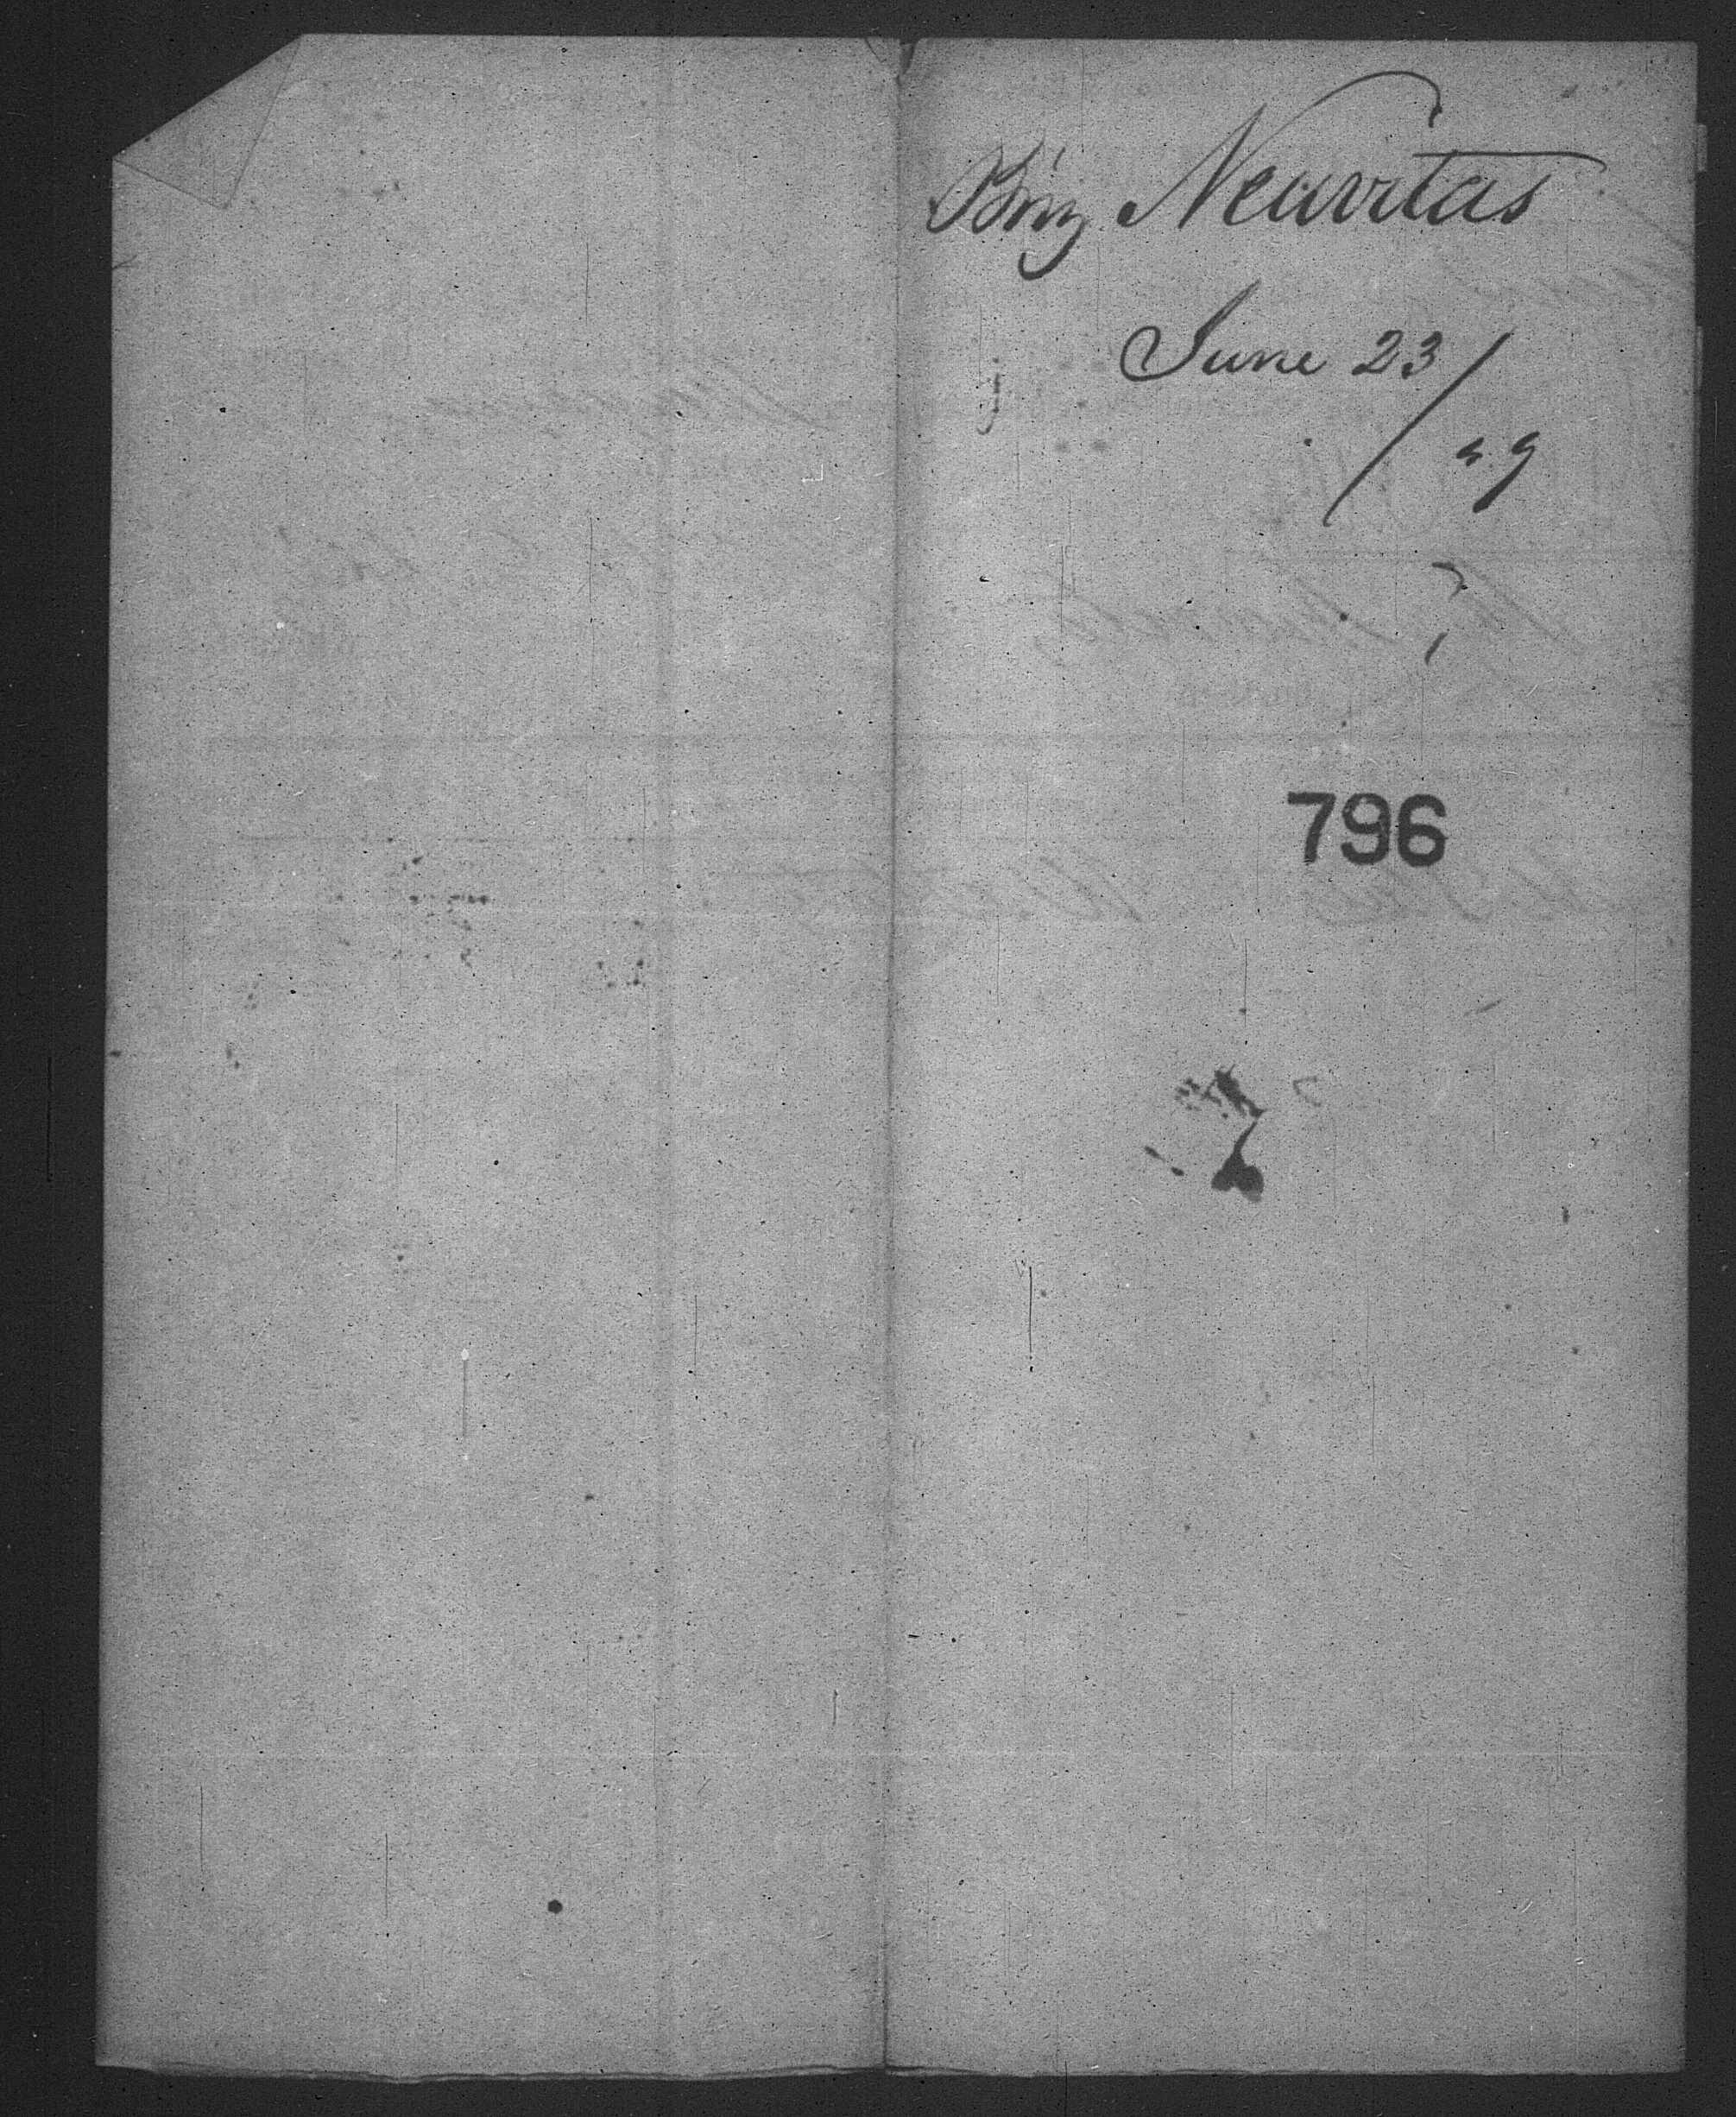 Brig Neuvitas
June 23/
/29
796